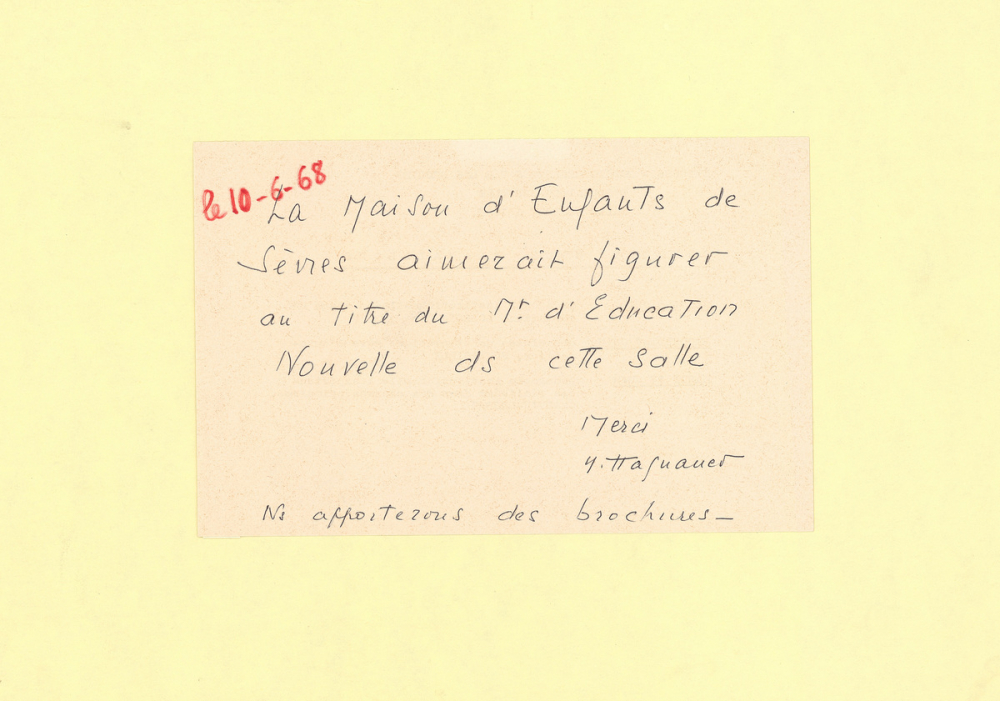 le 10-6-68
La Maison d'Enfants de
Sèvres aimerait figurer
au titre du Mt d'Education
Nouvelle ds cette salle
Merci
Y. Hagnauer
Ns apporterons des brochures_